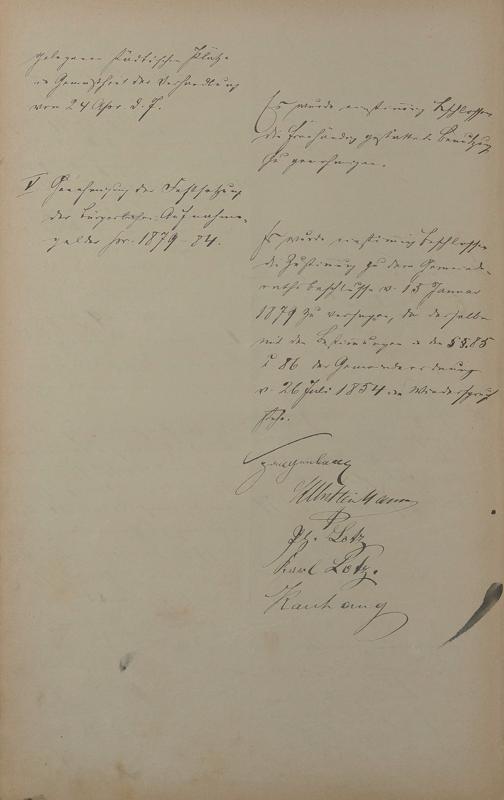 gelegenen städtischen Plätze
in Gemäßheit der Verhandlung
vom 24 Apr. d. J.
Es wurde einstimmig beschlossen
die freihändig gestattete Benutzung
zu genehmigen.
V Genehmigung der Festsetzung
der Bürgerlichen Aufnahme-
gelder pro 1879-84.
Es wurde einstimmig beschlossen
die Zustimmung zu dem Gemeinde-
rathsbeschlusse v. 15 Januar
1879 zu versagen, da derselbe
mit den Bestimmungen in den §§. 85
u 86 der Gemeindeordnung
v. 26 Juli 1854 in Widerspruch
stehe.
Ph. Lotz
Karl Lotz.